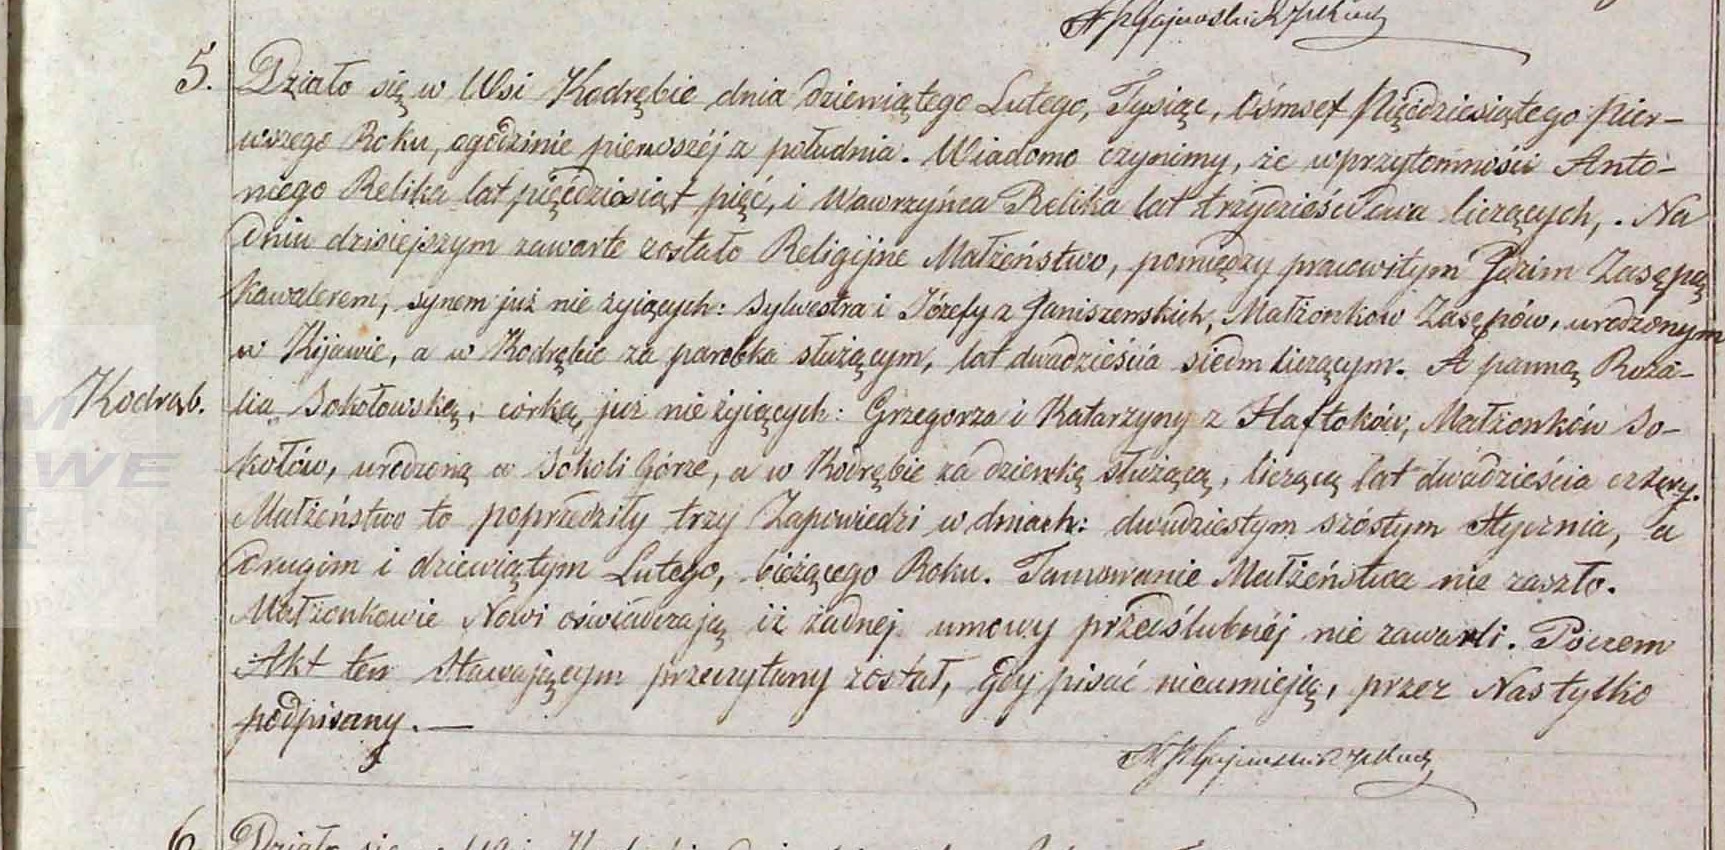 5. Działo się w Wsi Kodrębie dnia dziewiątego Lutego, Tysiąc, Ośmset Pięćdziesiątego Pier-
wszego Roku, ogodzinie pierwszéj z południa. Wiadomo czynimy, że wprzytomności Anto-
niego Relika lat pięćdziesiąt pięć, i Wawrzyńca Relika lat trzydzieści dwa liczących,. Na
dniu dzisiejszym zawarte zostało Religijne Małżeństwo, pomiędzy pracowitym Józim Zasępą
Kawalerem, synem już nie żyiących: Sylwestra i Józefy z Janiszewskich, Małżonków Zasępów, urodzonym
w Kijawie, a w Kodrębie za parobka służącym, lat dwadzieścia siedm liczącym. A panną Roza-
Kodrąb. lią Sokołowską, córką już nie żyiących: Grzegorza i Katarzyny z Haftoków, Małżonków So-
kołów, urodzoną w Sokoli Górze, a w Kodrębie za dziewkę służącą, liczącą lat dwadzieścia cztery.
Małżeństwo to poprzedziły trzy Zapowiedzi w dniach: dwudziestym szóstym Stycznia, a
drugim i dziewiątym Lutego, bieżącego Roku. Tamowanie Małżeństwa nie zaszło.
Małżonkowie Nowi oświadczają iż żadnej umowy przedślubnéj nie zawarli. Poczem
Akt ten Stawającym przeczytany został, gdy pisać nieumieją, przez Nas tylko
podpisany. —
6. Działo się w Wsi